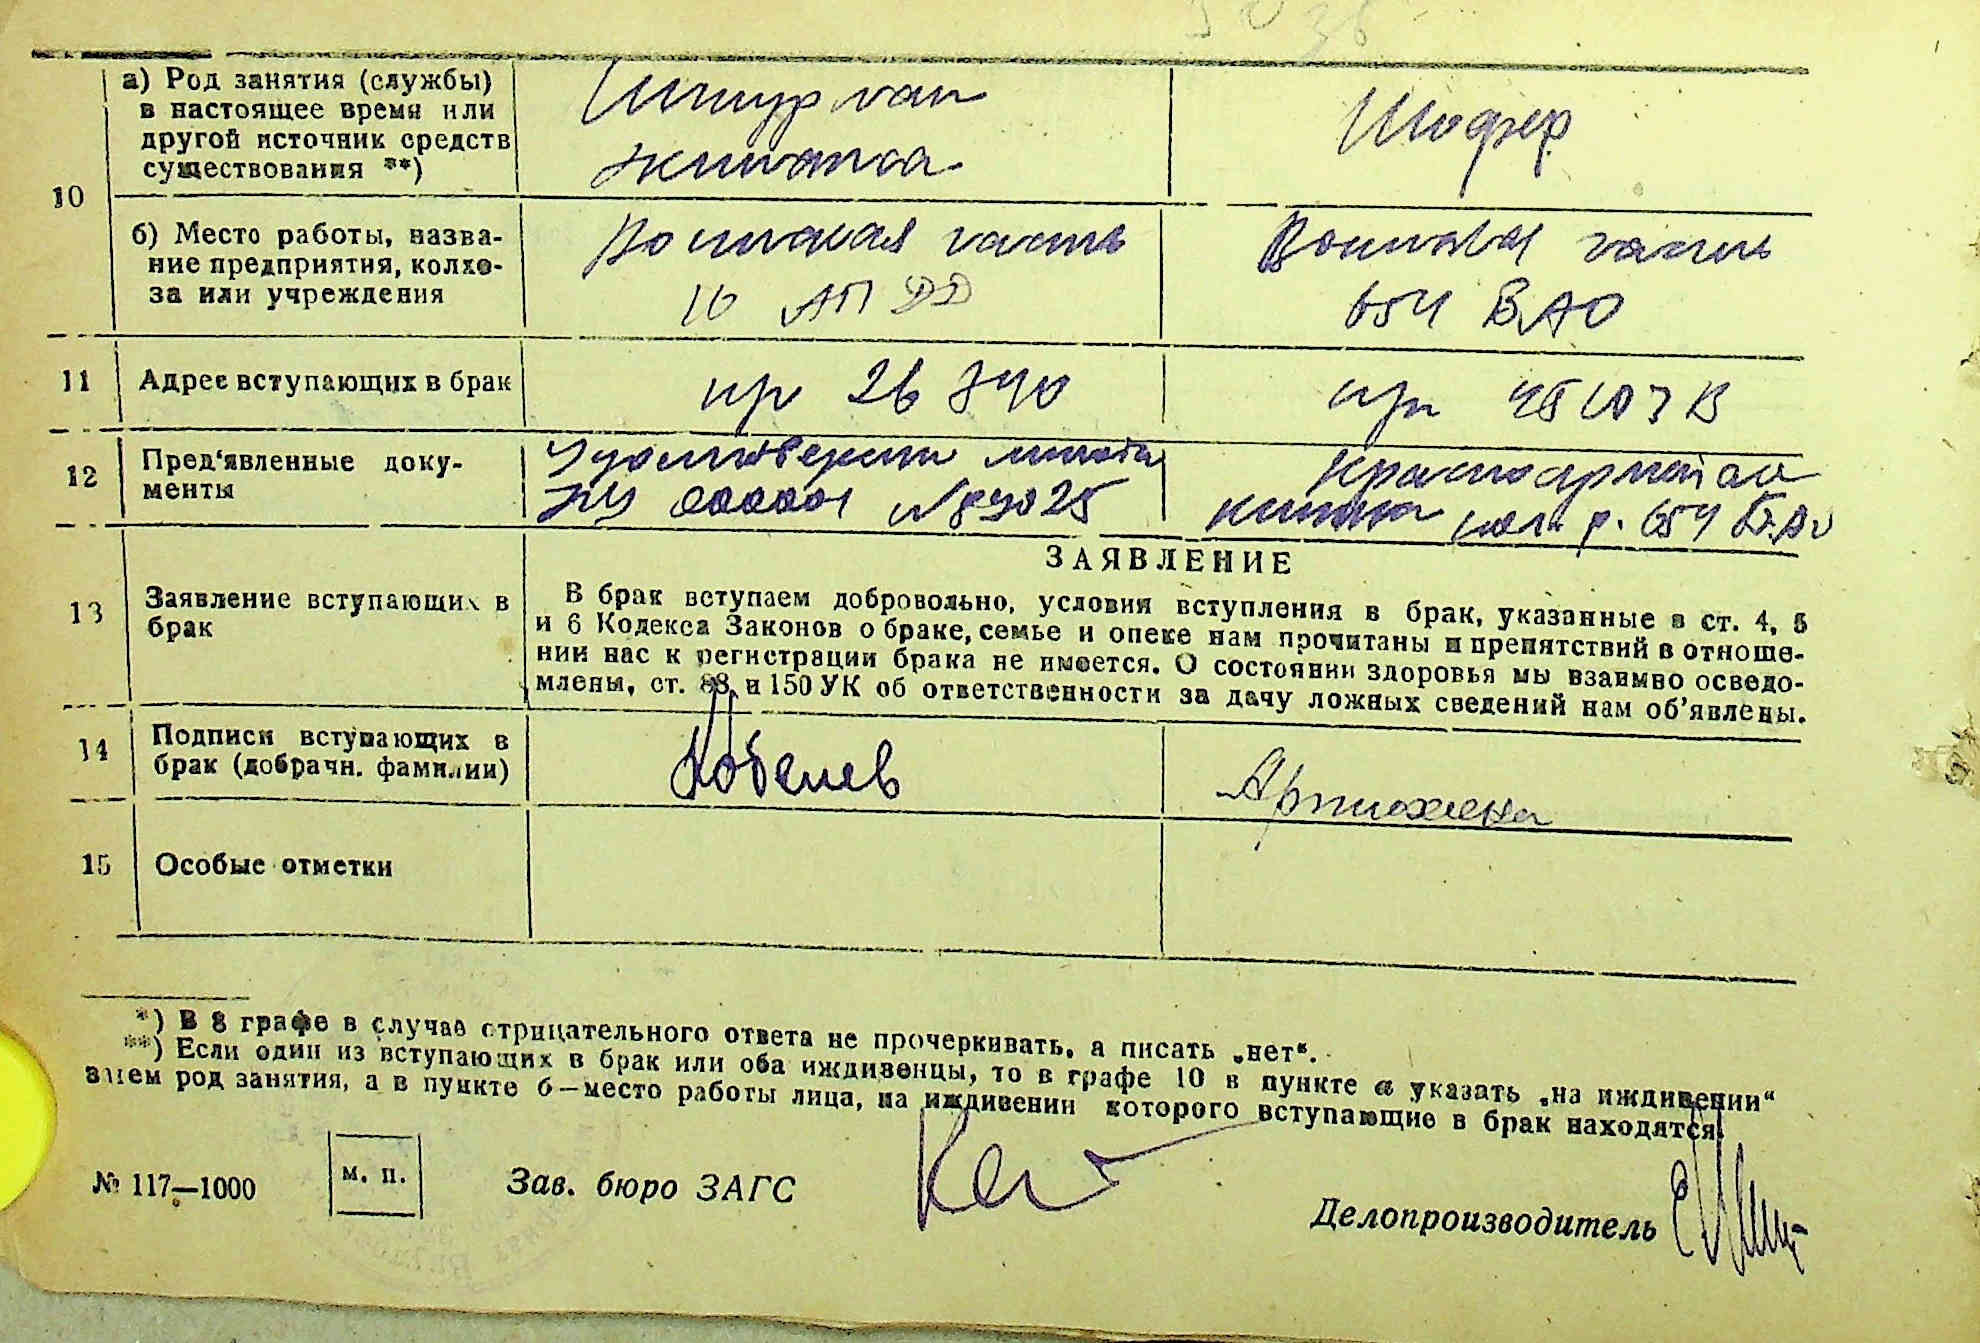 10
а) Род занятия (службы)
в настоящее время или
другой источник средств
существования **)
Штурман
экипажа
Шофер
б) Место работы, назва-
ние предприятия, колхо-
за или учреждения
Воинская часть
10 АПДД
Воинская часть
654 БАО
11
Адрес вступающих в брак
пр
26
45107 В
12
Пред'явленные доку-
менты
Удостоверение личности
№
Красноармейская
книжка
654 БАО
13
Заявление вступающих в
брак
ЗАЯВЛЕНИЕ
В брак вступаем добровольно, условия вступления в брак, указанные в ст. 4, 5
и 6 Кодекса Законов о браке, семье и опеке нам прочитаны и препятствий в отноше-
нии нас к регистрации брака не имеется. О состоянии здоровья мы взаимво осведо-
млены, ст. 88 и 150 УК об ответственности за дачу ложных сведений нам об'явлены.
14
Подписи вступающих в
брак (добрачн. фамилии)
Кобелев
Артюхена
15
Особые отметки
*) В 8 графе в случае отрицательного ответа не прочеркивать, а писать „нет“.
**) Если один из вступающих в брак или оба иждивенцы, то в графе 10 в пункте а указать „на иждивении“
зием род занятия, а в пункте б—место работы лица, на иждивении которого вступающие в брак находятся.
№ 117—1000
м. п.
Зав. бюро ЗАГС
Делопроизводитель